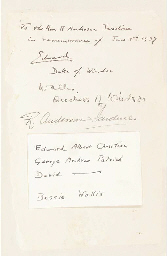 To the Rev R Anderson Jardine
in remembrance of June 3rd 1937
Edward
Duke of Windsor
Wallis
Duchess of Windsor
R. Anderson Jardine
Edward Albert Christian
George Andrew Patrick
David
Bessie Wallis